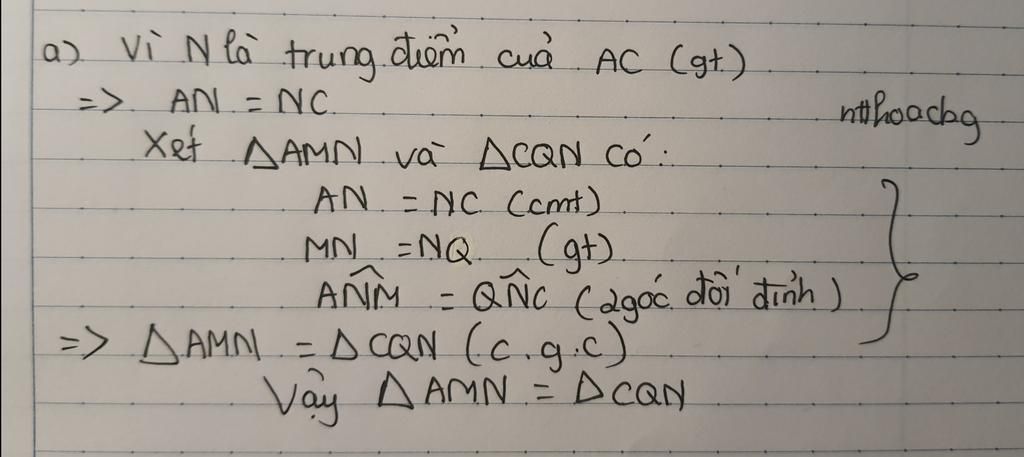 a) Vì N là trung điểm cuả AC (gt)
=> AN = NC
ntthoacbg
Xét ΔAMN và ΔCQN có:
AN = NC (cmt)
MN = NQ (gt)
AN̂M = QN̂C (2 góc đối đỉnh)
=> ΔAMN = ΔCQN (c.g.c)
Vậy ΔAMN = ΔCQN